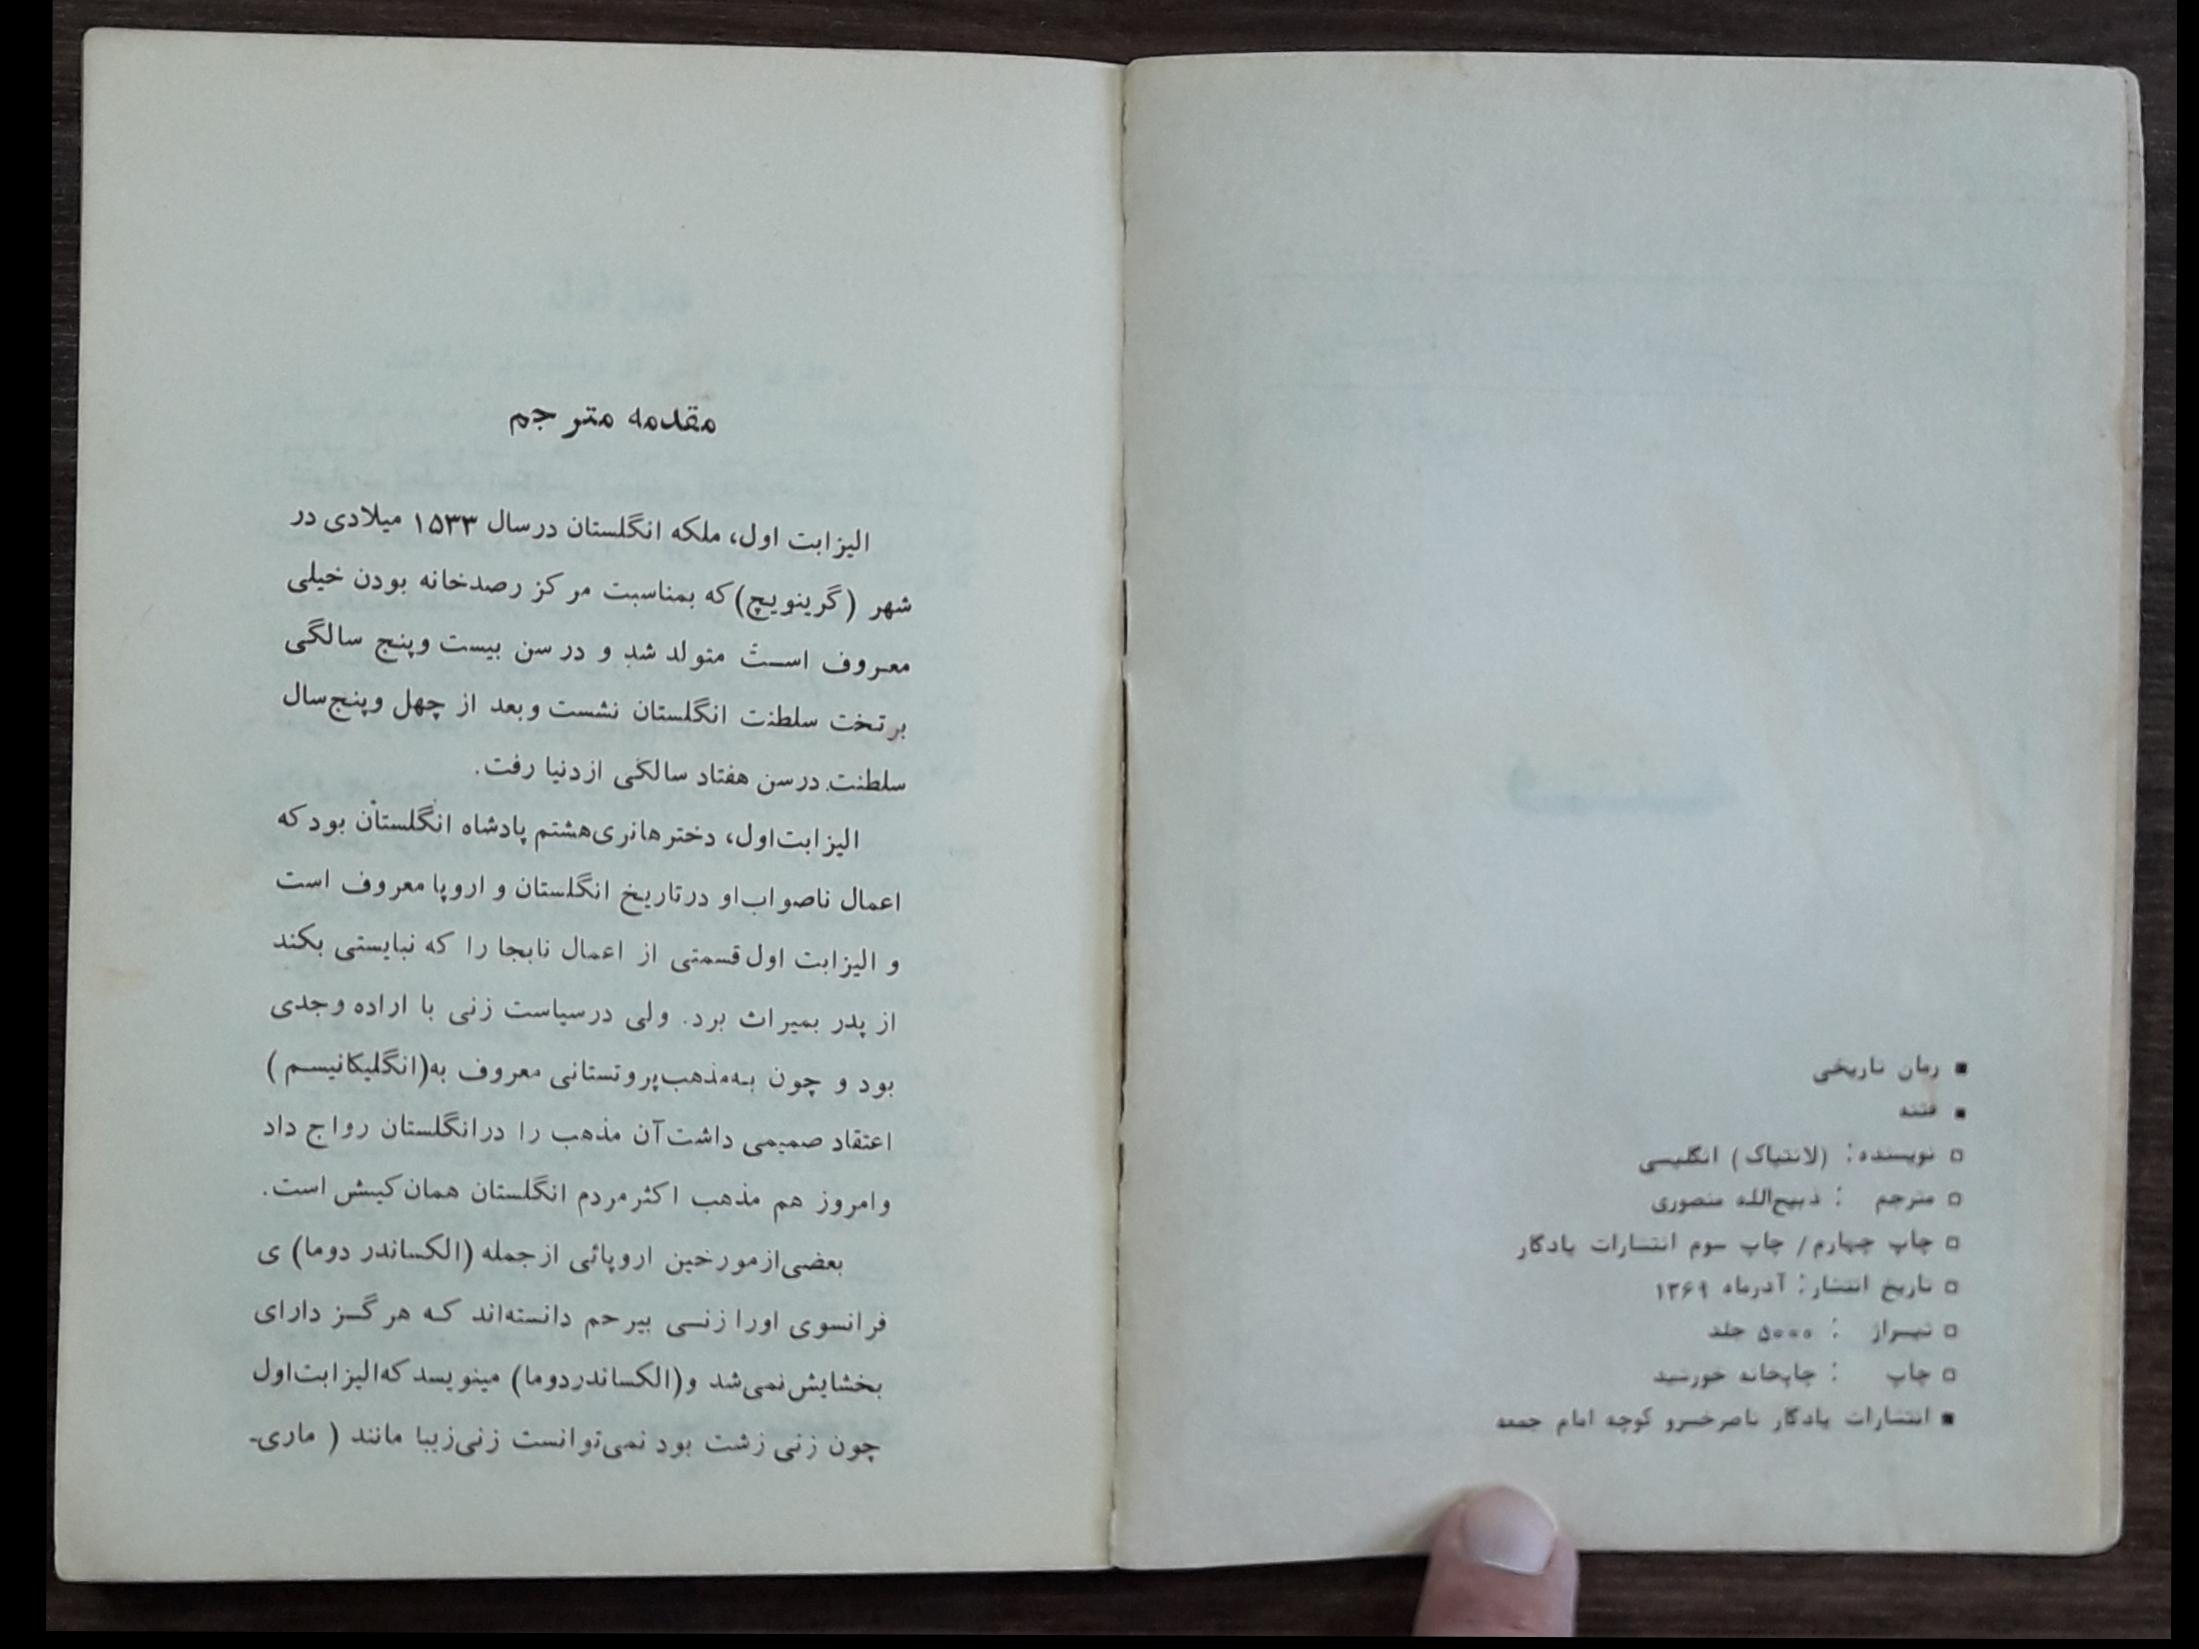 ▪ رمان تاریخی
▪ فتنه
▫ نویسنده: (لانتیاک) انگلیسی
▫ مترجم : ذبیح‌الله منصوری
▫ چاپ چهارم/ چاپ سوم انتشارات یادگار
▫ تاریخ انتشار: آذرماه ۱۳۶۹
▫ تیراژ : ۵۰۰۰ جلد
▫ چاپ : چاپخانه خورشید
▪ انتشارات یادگار ناصرخسرو کوچه امام جمعه
مقدمه مترجم
الیزابت اول، ملکه انگلستان درسال ۱۵۳۳ میلادی در
شهر (گرینویچ) که بمناسبت مرکز رصدخانه بودن خیلی
معروف است متولد شد و در سن بیست وپنج سالگی
برتخت سلطنت انگلستان نشست وبعد از چهل وپنج‌سال
سلطنت درسن هفتاد سالگی ازدنیا رفت.
الیزابت‌اول، دختر هانری‌هشتم پادشاه انگلستان بود که
اعمال ناصواب‌او درتاریخ انگلستان و اروپا معروف است
و الیزابت اول قسمتی از اعمال نابجا را که نبایستی بکند
از پدر بمیراث برد. ولی درسیاست زنی با اراده وجدی
بود و چون به‌مذهب‌پروتستانی معروف به(انگلیکانیسم )
اعتقاد صمیمی داشت‌آن مذهب را درانگلستان رواج داد
وامروز هم مذهب اکثرمردم انگلستان همان‌کیش است.
بعضی‌ازمورخین اروپائی ازجمله (الکساندر دوما) ی
فرانسوی اورا زنـی بیرحم دانسته‌اند کـه هرگـز دارای
بخشایش‌نمی‌شد و(الکساندردوما) مینویسد که‌الیزابت‌اول
چون زنی زشت بود نمی‌توانست زنی‌زیبا مانند ( ماری‌ـ